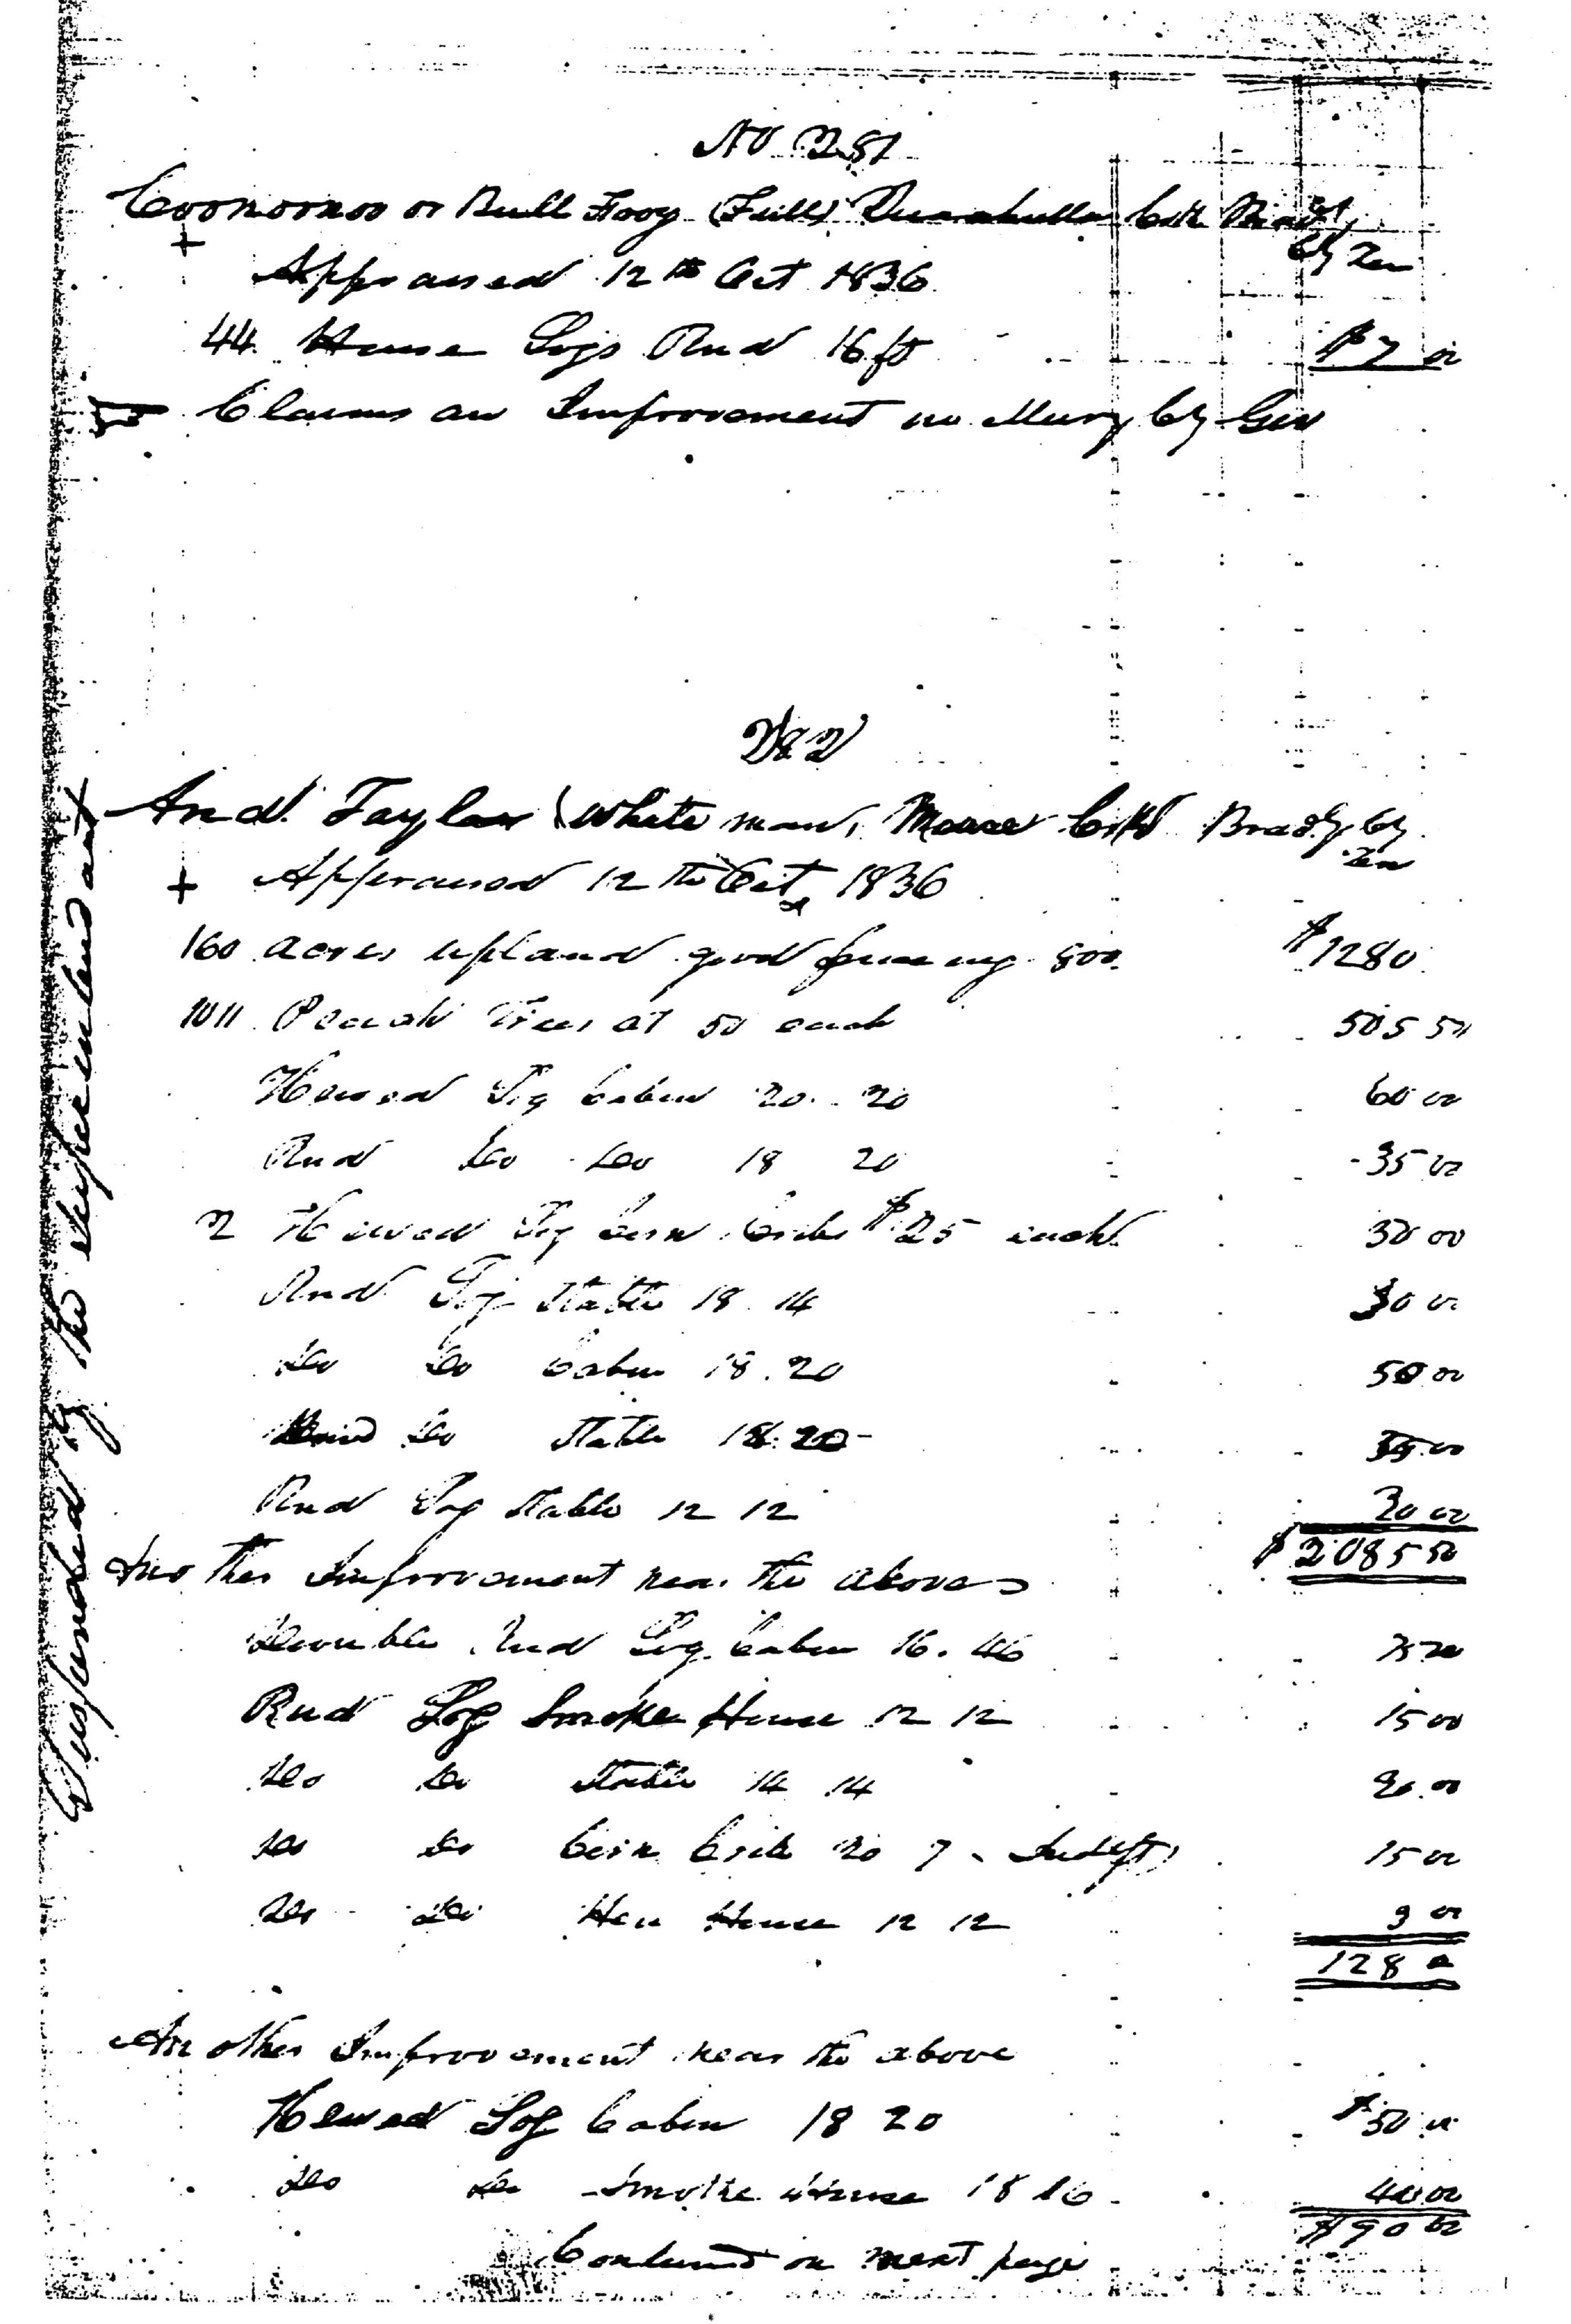 No 281
or Bull Frog (Full) Crk
+ Ten
Appraised 12th Oct 1836
44 House Logs Rnd 16 ft $7 00
Claims an Improvement no by Geo
282
And. Taylor (White man) Crk Bradly Cty Ten
+ Appraised 12th Oct 1836
160 acres upland good 800 $1280
1011 Peach Trees at 50 each 505 50
Hewed Log Cabin 20. 20 60 00
Rnd Do Do 18 20 35 00
2 Hewed Log Corn Cribs $25 each 50 00
Rnd Log Stable 18. 14 30 00
Do Do Cabin 18. 20 50 00
Do Stable 18. 20
Rnd Log Stable 12 12
$2085 50
Another Improvement near the above
Double Rnd Log Cabin 16. 46
Rnd Log Smoke House 12 12 15 00
Do Do Stable 14 14
Do Do Corn Crib 20 7 15 00
Do Do Hen House 12 12 3 00
128 00
Another Improvement near the above
Hewed Log Cabin 18 20 $50 00
Do Do Smoke House 18 16 40 00
$90 00
Continued on next page
Suspended by the superintendant